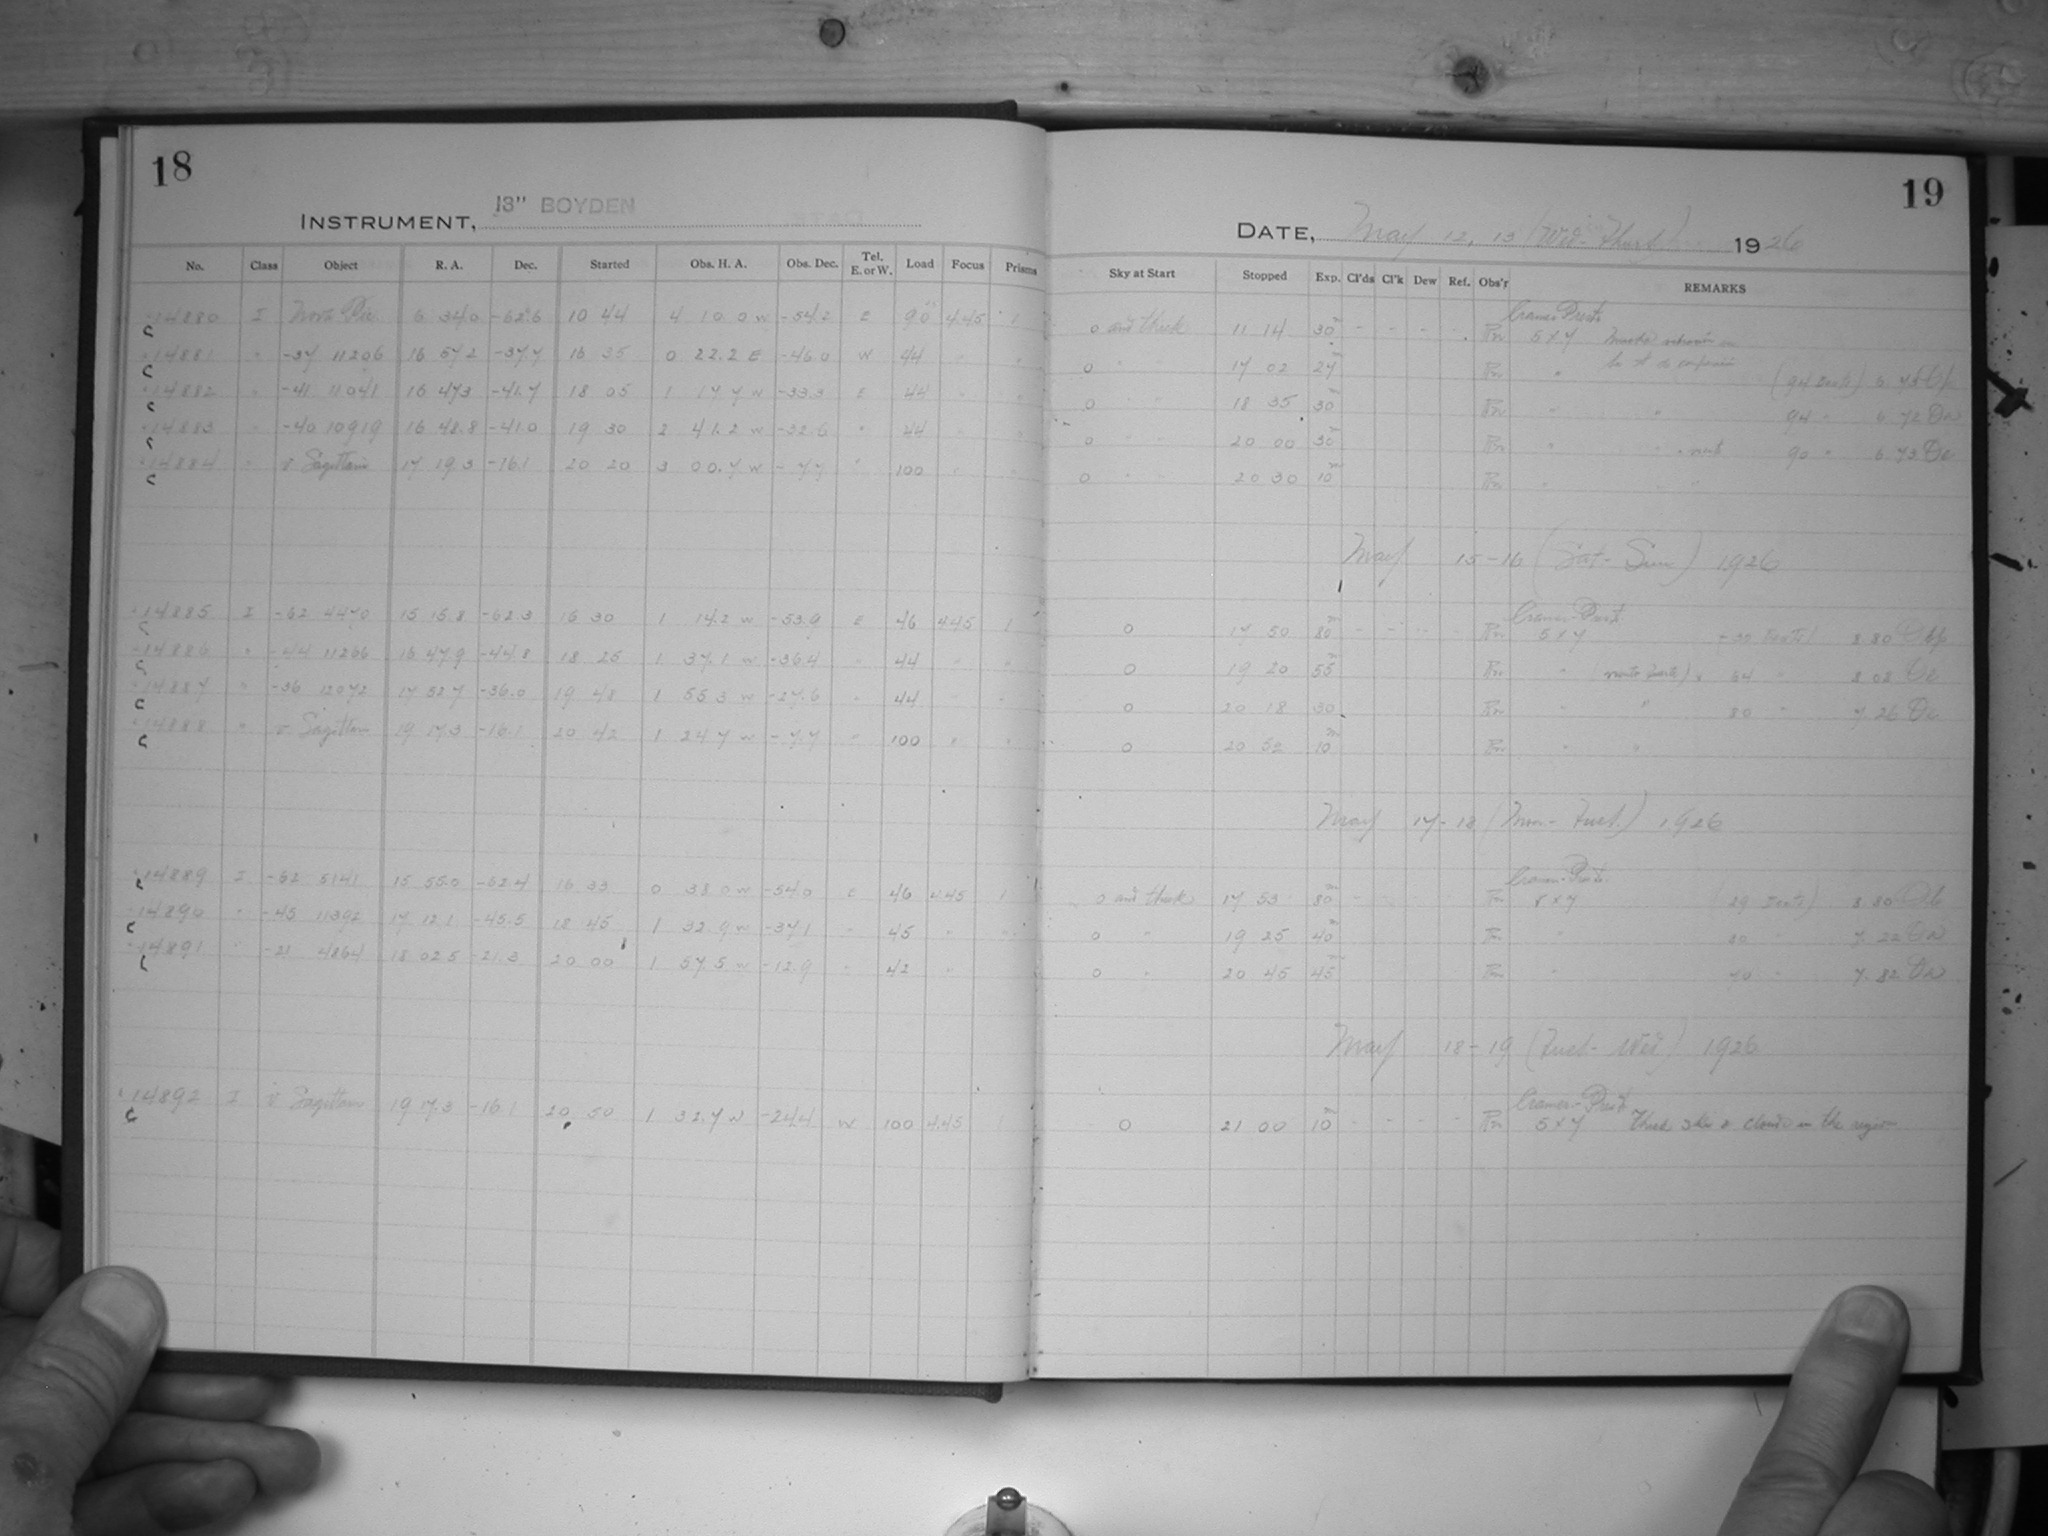 18
INSTRUMENT, 13" BOYDEN
No. Class Object R. A. Dec. Started Obs. H. A. Obs. Dec. Tel. E. or W. Load Focus Prisms
14880 I Nova Pic 6 34.0 -62.6 10 44 4 10.0 W -54.2 E 90 4.45 1
C
14881 " -37 11206 16 57.2 -37.7 16 35 0 22.2 E -46.0 W 44 " "
C
14882 " -41 11041 16 47.3 -41.7 18 05 1 17.7 W -33.3 E 44 " "
C
14883 " -40 10919 16 48.8 -41.0 19 30 2 41.2 W -32.6 " 44 " "
C
14884 " v Sagittarii 17 19.3 -16.1 20 20 3 00.7 W -7.7 " 100 " "
C
14885 I -62 4470 15 15.8 -62.3 16 30 1 14.2 W -53.9 E 46 4.45 1
C
14886 " -44 11266 16 47.9 -44.8 18 25 1 37.1 W -36.4 " 44 " "
C
14887 " -36 12072 17 52.7 -36.0 19 48 1 55.3 W -27.6 " 44 " "
C
14888 " v Sagittarii 19 17.3 -16.1 20 42 1 24.7 W -7.7 " 100 " "
C
14889 I -62 5141 15 55.0 -62.4 16 33 0 38.0 W -54.0 E 46 4.45 1
C
14890 " -45 11392 17 12.1 -45.5 18 45 1 32.9 W -37.1 " 45 " "
C
14891 " -21 4864 18 02.5 -21.3 20 00 1 57.5 W -12.9 " 42 "
C
14892 I v Sagittarii 19 17.3 -16.1 20 50 1 32.7 W -24.4 W 100 4.45 1
C
19
DATE, May 12, 13 (Wed-Thurs) 1926
Sky at Start Stopped Exp. Cl'ds Cl'k Dew Ref. Obs'r REMARKS
Cramer Presto
0 and thick 11 14 30m - - - - 5 x 7
0 " 17 02 27m "
0 " " 18 35 30m " " 94 " 6.72
0 " " 20 00 30m " " 90 " 6.73
0 " " 20 30 10m " "
May 15-16 (Sat-Sun) 1926
Cramer-Presto
0 17 50 80m - - - - 5 x 7 8.80
0 19 20 55m " 8.02
0 20 18 30 " " 80 " 7.26
0 20 52 10m " "
May 17-18 (Mon-Tues.) 1926
Cramer-Presto
0 and thick 17 53 80m 8.80
0 " 19 25 40m " 80 " 7.22
0 " 20 45 45m " 7.82
May 18-19 (Tues-Wed) 1926
Cramer-Presto
0 21 00 10m - - - - 5 x 7 Thick sky & clouds in the region